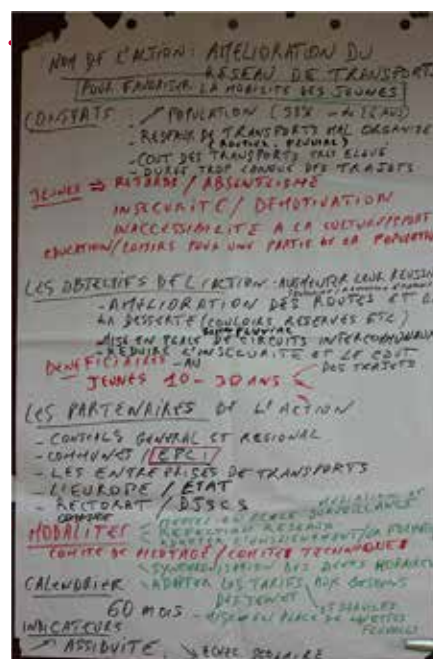 NOM DE L'ACTION: AMELIORATION DU
RESEAU DE TRANSPORTS
POUR FAVORISER LA MOBILITE DES JEUNES
CONSTATS : ↗ POPULATION (
- RESEAUX DE TRANSPORTS MAL ORGANISE
(ROUTIER, FLUVIAL)
- COUT DES TRANSPORTS TRES ELEVE
- DUREE TROP LONGUE DES TRAJETS
JEUNES ⇒ RETARDS / ABSENTEISME
INSECURITE / DEMOTIVATION
INACCESSIBILITE A LA CULTURE/SPORT
EDUCATION/LOISIRS POUR UNE PARTIE DE LA POPULATION
LES OBJECTIFS DE L'ACTION - AUGMENTER LEUR REUSSITE
- AMELIORATION DES ROUTES ET DE
LA DESSERTE (COULOIRS RESERVES ETC)
- MISE EN PLACE DE CIRCUITS INTERCOMMUNAUX
- REDUIRE L'INSECURITE ET LE COUT
DES TRAJETS
BENEFICIAIRES - AU
JEUNES 10-30 ANS
LES PARTENAIRES DE L'ACTION
- CONSEILS GENERAL ET REGIONAL
- COMMUNES / EPCI
- LES ENTREPRISES DE TRANSPORTS
- L'EUROPE / ETAT
- RECTORAT / DJSCS
MEDIATION ET
MODALITES METTRE EN PLACE SURVEILLANCE
REFECTION RESEAUX
COMITE DE PILOTAGE / COMITE TECHNIQUE
SYNCHRONISATION DES DIVERS HORAIRES
CALENDRIER ADAPTER LES TARIFS AUX BESOINS
DES JEUNES
60 MOIS - MISE EN PLACE DE NAVETTES
FLUVIALES
INDICATEURS
↗ ASSIDUITE, ↘ ECHEC SCOLAIRE